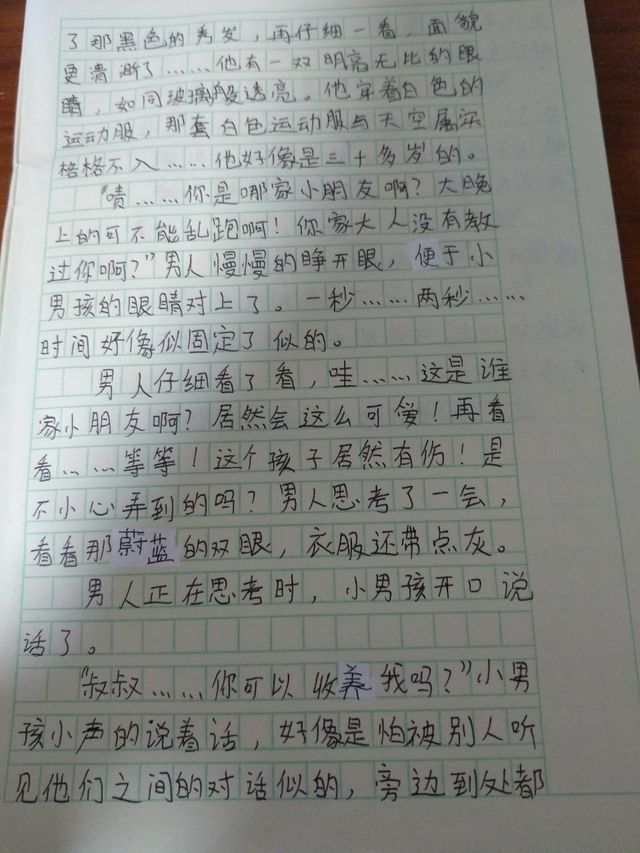 了那黑色的秀发，再仔细一看，面貌
更清晰了……他有一双明亮无比的眼
睛，如同玻璃般透亮。他穿着白色的
运动服，那套白色运动服与天空属实
格格不入……他好像是三十多岁的。
“啧……你是哪家小朋友啊？大晚
上的可不能乱跑啊！你家大人没有教
过你啊？”男人慢慢的睁开眼，便于小
男孩的眼睛对上了。一秒……两秒……
时间好像似固定了似的。
男人仔细看了看，哇……这是谁
家小朋友啊？居然会这么可爱！再看
看……等等！这个孩子居然有伤！是
不小心弄到的吗？男人思考了一会，
看看那蔚蓝的双眼，衣服还带点灰。
男人正在思考时，小男孩开口说
话了。
“叔叔……你可以收养我吗？”小男
孩小声的说着话，好像是怕被别人听
见他们之间的对话似的，旁边到处都